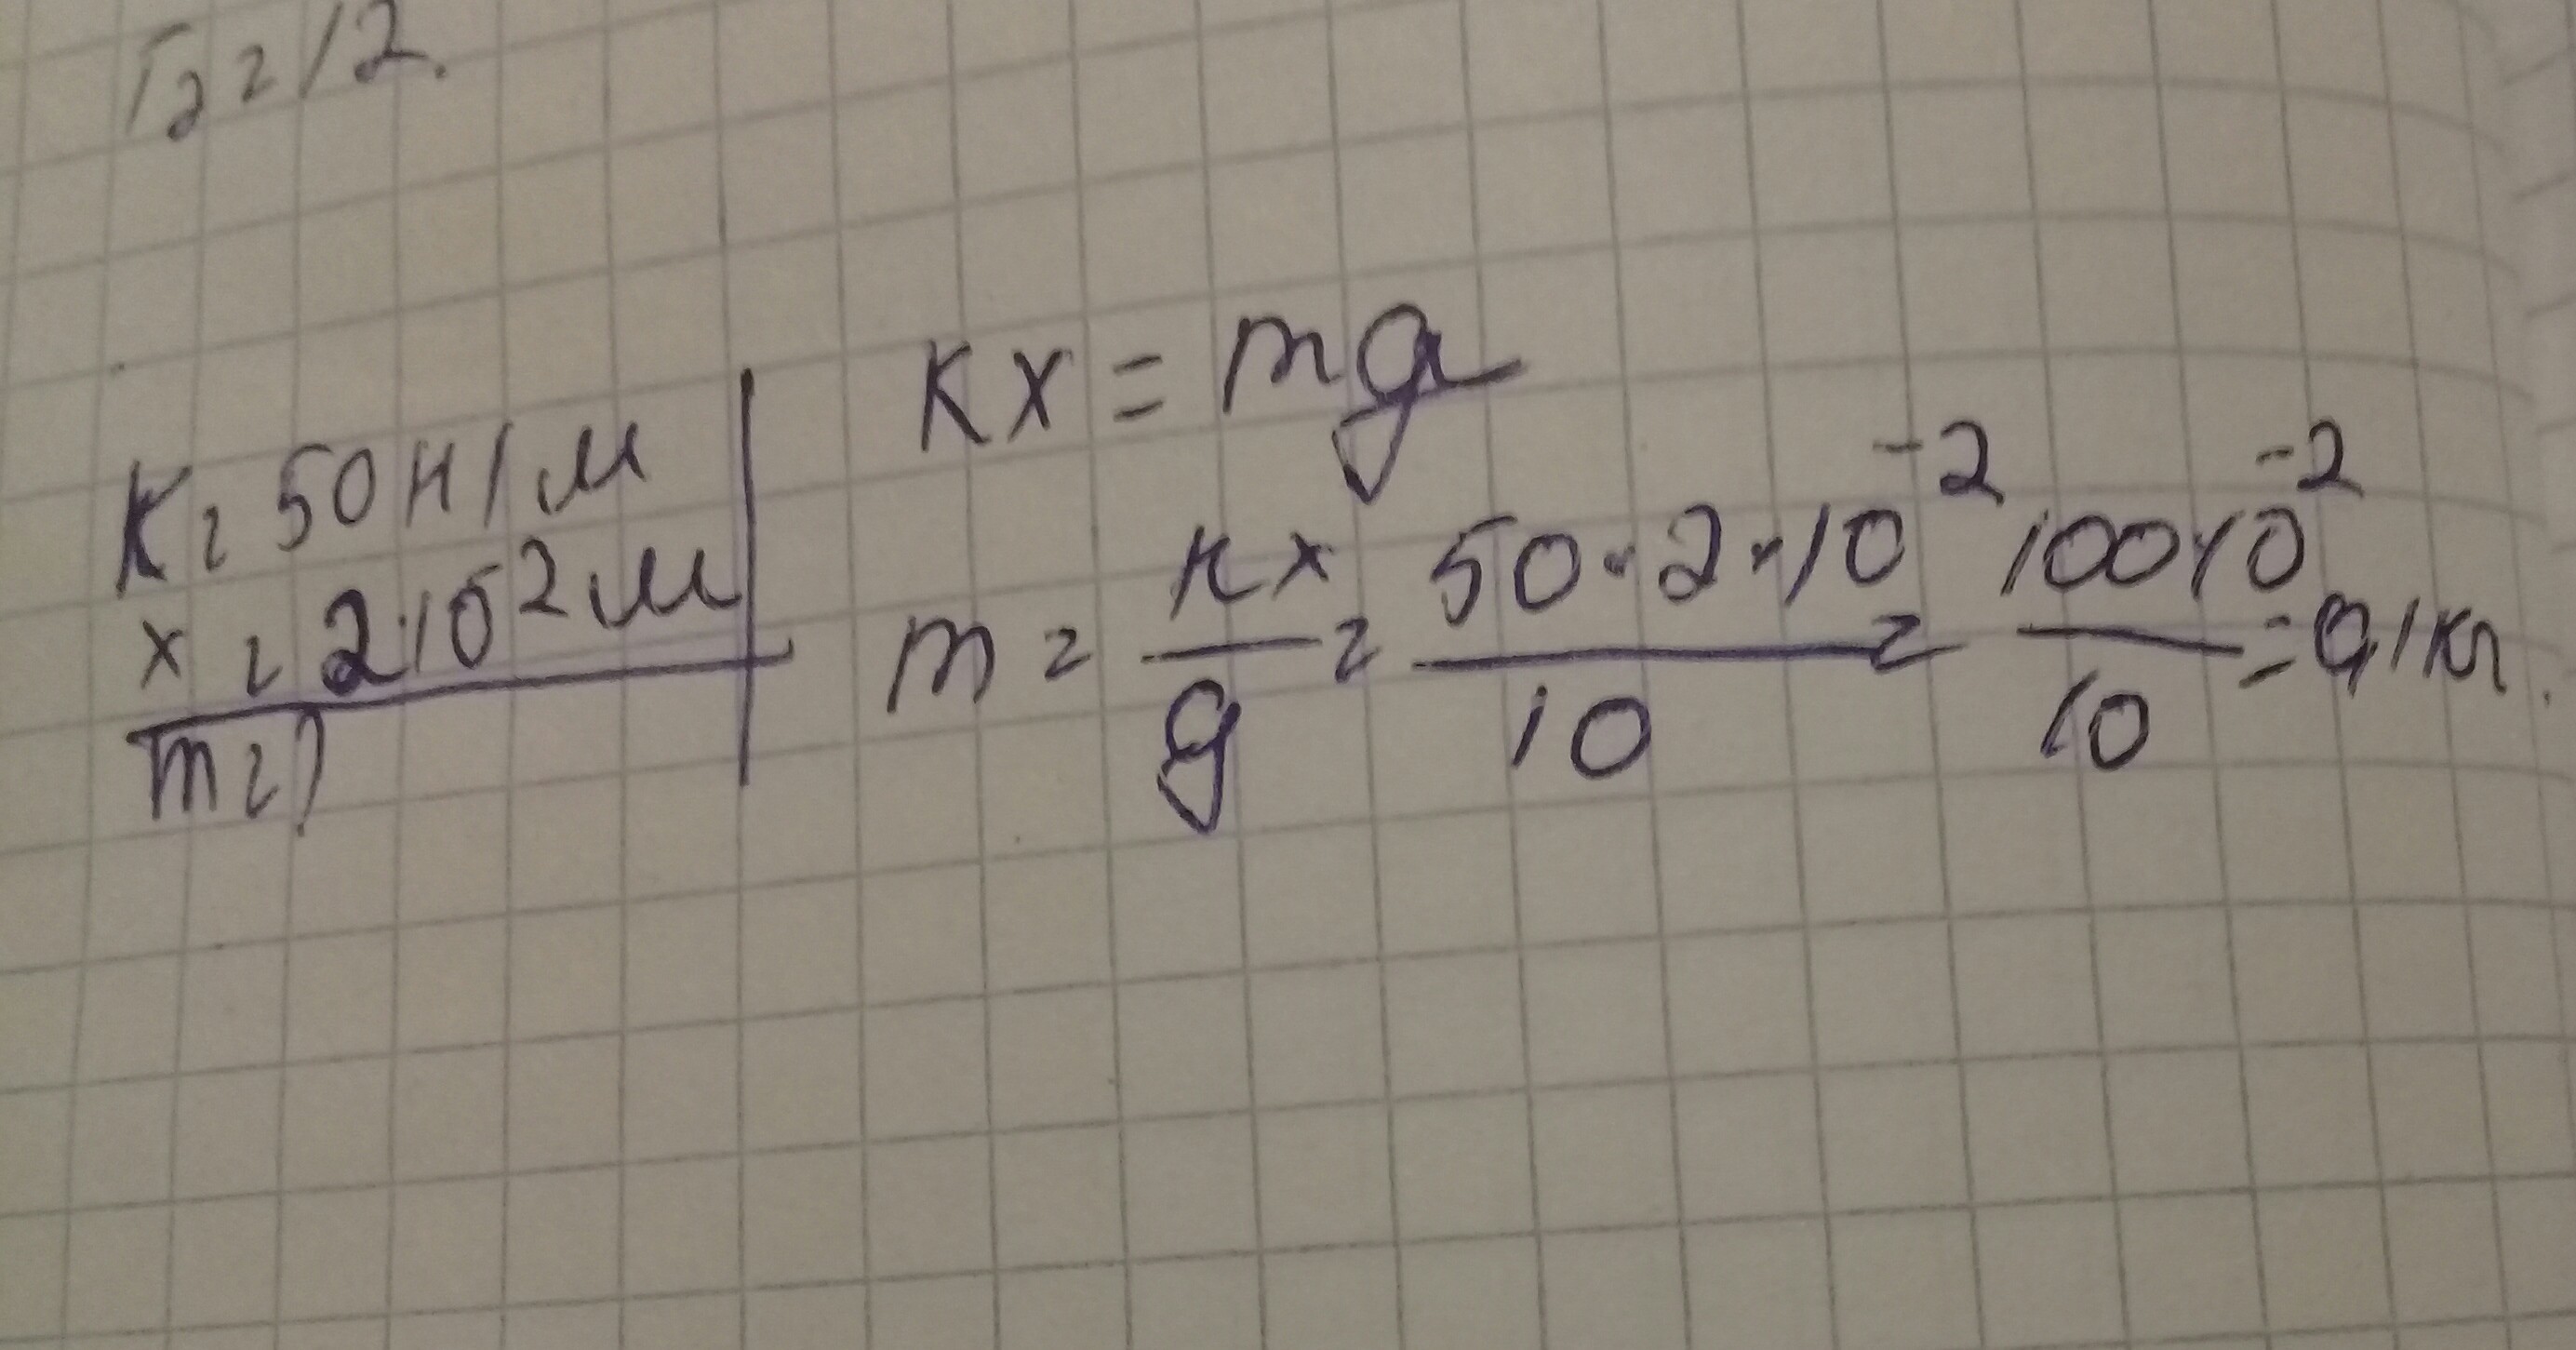 T₂ = 12.
K = 50 Н/м
x = 2·10⁻² м
m = ?
Kx = mg
m = Kx/g = 50·2·10⁻²/10 = 100·10⁻²/10 = 0,1 кг.